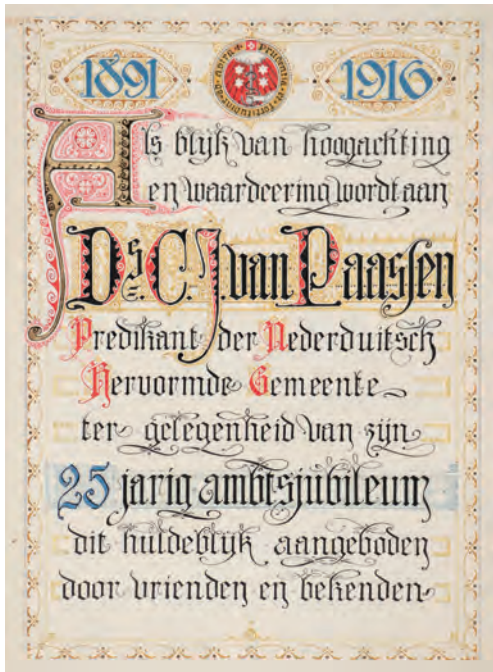 1891 1916
Prudentia
Als blijk van hoogachting
en waardeering wordt aan
Ds. C. J. van Paassen
Predikant der Nederduitsch
Hervormde Gemeente
ter gelegenheid van zijn
25 jarig ambtsjubileum
dit huldeblijk aangeboden
door vrienden en bekenden